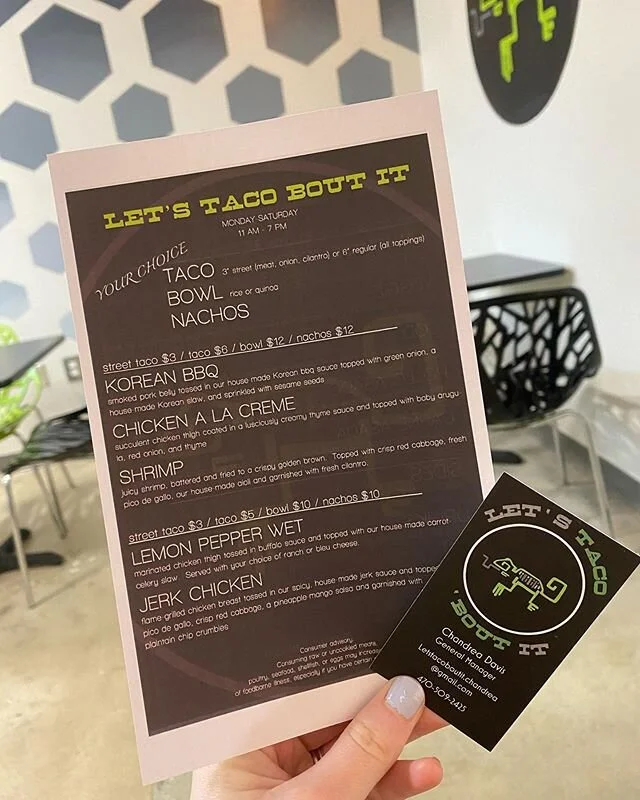 LET'S TACO BOUT IT
MONDAY-SATURDAY
11 AM - 7 PM
YOUR CHOICE
TACO 3" street (meat, onion, cilantro) or 6" regular (all toppings)
BOWL rice or quinoa
NACHOS
street taco $3 / taco $6 / bowl $12 / nachos $12
KOREAN BBQ
smoked pork belly tossed in our house made Korean bbq sauce topped with green onion, a
house made Korean slaw, and sprinkled with sesame seeds
CHICKEN A LA CREME
succulent chicken thigh coated in a lusciously creamy thyme sauce and topped with baby arugu-
la, red onion, and thyme
SHRIMP
juicy shrimp, battered and fried to a crispy golden brown. Topped with crisp red cabbage, fresh
pico de gallo, our house-made aioli and garnished with fresh cilantro.
street taco $3 / taco $5 / bowl $10 / nachos $10
LEMON PEPPER WET
marinated chicken thigh tossed in buffalo sauce and topped with our house made carrot-
celery slaw. Served with your choice of ranch or bleu cheese.
JERK CHICKEN
flame grilled chicken breast tossed in our spicy, house made jerk sauce and topped
pico de gallo, crisp red cabbage, a pineapple mango salsa and garnished with
plaintain chip crumbles
Consumer advisory:
Consuming raw or uncooked meats,
poultry, seafood, shellfish, or eggs may increase
of foodborne illness, especially if you have certain
LET'S TACO
'BOUT IT
Chandrea Davis
General Manager
Letstacoboutit.chandrea
@gmail.com
470-509-2425